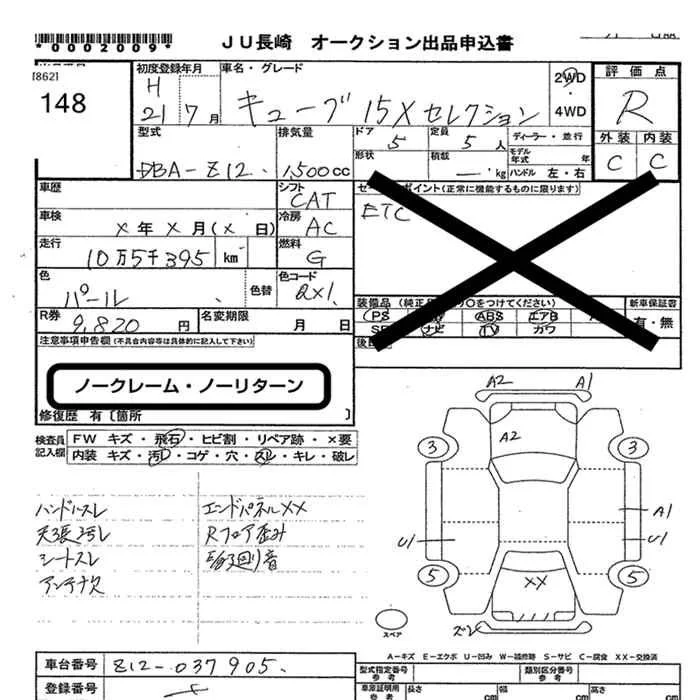 *0002009*
JU長崎 オークション出品申込書
[862]
148
初度登録年月
H
21 7月
車名・グレード
キューブ 15Xセレクション
2WD
・
4WD
評価点
R
外装 内装
C C
型式
DBA-Z12
排気量
1,500cc
ドア 5
定員 5人
形状
積載 kg
ディーラー・並行
モデル年式 年
ハンドル 左・右
車歴
シフト
CAT
車検
X年X月(X日)
冷房
AC
走行
10万5千395 km
燃料
G
色
パール
色替
色コード
QX1
R券
9,820円
名変期限
月 日
ETC
ポイント(正常に機能するものに限ります)
装備品
をつけてください)
PS ABS エアB
ナビ TV カワ
新車保証書
有・無
注意事項申告欄(不具合内容等は具体的に記入して下さい)
ノークレーム・ノーリターン
修復歴 有〔箇所 〕
検査員記入欄
FW キズ・飛石・ヒビ割・リペア跡・×要
内装 キズ・汚レ・コゲ・穴・スレ・キレ・破レ
ハンドルスレ
天張汚レ
シートスレ
アンテナ欠
エンドパネルXX
Rフロア歪み
A2 A1
A2
3 3
A1
U1 U1
5 5
XX
スペア
A-キズ E-エクボ U-凹み W-補修跡 S-サビ C-腐食 XX-交換済
車台番号 Z12-037905
登録番号
型式指定番号
参考
類別区分番号
参考
車庫証明用
参考
長さ cm
幅 cm
高さ cm